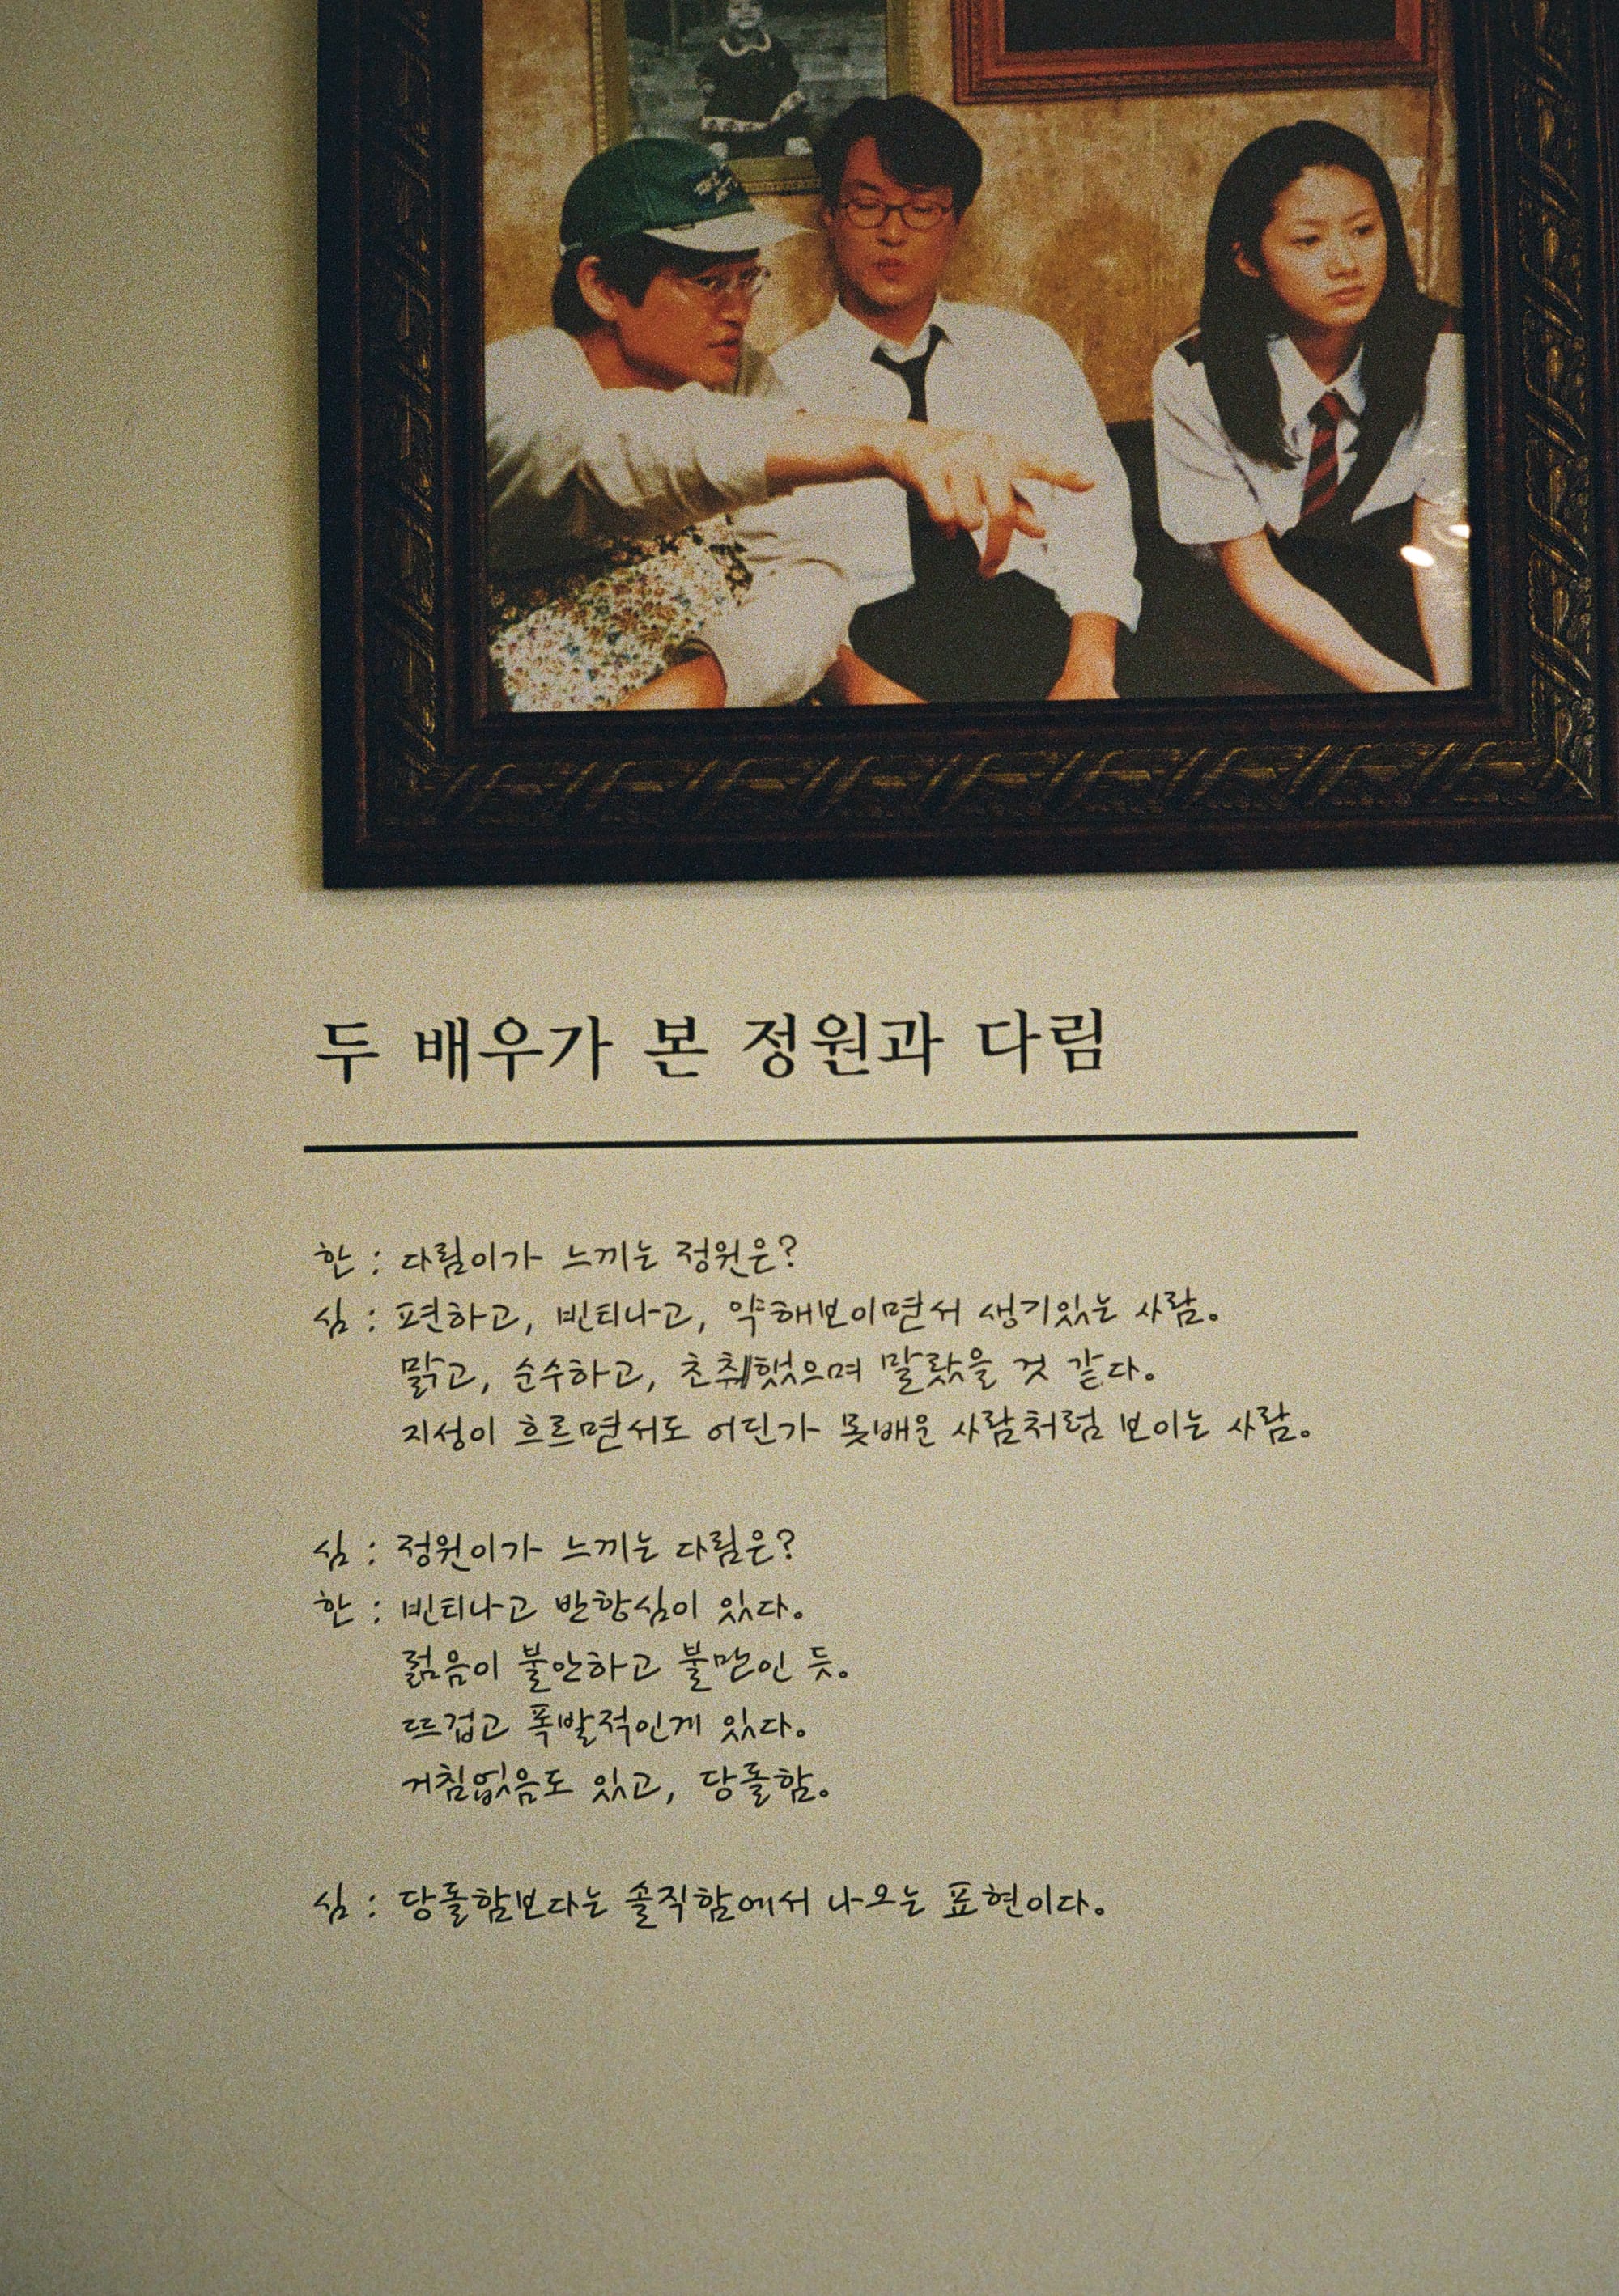 두 배우가 본 정원과 다림
한 : 다림이가 느끼는 정원은?
심 : 편하고, 빈티나고, 약해보이면서 생기있는 사람.
맑고, 순수하고, 초췌했으며 말랐을 것 같다.
지성이 흐르면서도 어딘가 못배운 사람처럼 보이는 사람.
심 : 정원이가 느끼는 다림은?
한 : 빈티나고 반항심이 있다.
젊음이 불안하고 불만인 듯.
뜨겁고 폭발적인게 있다.
거침없음도 있고, 당돌함.
심 : 당돌함보다는 솔직함에서 나오는 표현이다.